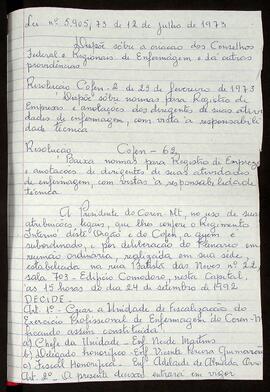 Lei nº 5.905, 73 de 12 de julho de 1973
Dispõe sôbre a criação dos Conselhos
Federal e Regionais de Enfermagem e dá outras
providências
Resolução Cofen-2 de 23 de fevereiro de 1973
Dispõe sôbre normas para Registro de
Empresas e anotações dos dirigentes de suas ativi
dades de enfermagem, com vista a responsabili
dade técnica
Resolução Cofen-62
Baixa normas para Registro de Empresa
e anotações de dirigentes de suas atividades
de enfermagem, com vistas à responsabilidade
técnica
A Presidente do Coren MT, no uso de suas
atribuições legais, que lhes confere o Regimento
Interno deste Órgão e do Cofen, a quem é
subordinado, e por deliberação do Plenário em
reunião ordinária, realizada em sua sede,
estabelecida na rua Batista das Neves nº 22,
sala 703 - Edifício Comodoro, nesta Capital,
as 15 horas do dia 24 de setembro de 1992
DECIDE
Art. 1º - Criar a Unidade de Fiscalização do
Exercício Profissional de Enfermagem do Coren-M
ficando assim constituída
a) Chefe da Unidade - Enf. Neide Martins
b) Delegado Honorífico - Enf. Vicente Pereira Guimarães
c) Fiscal Honorífico - Enf. de Almeida
Art. 2º - O presente entrará em vigor